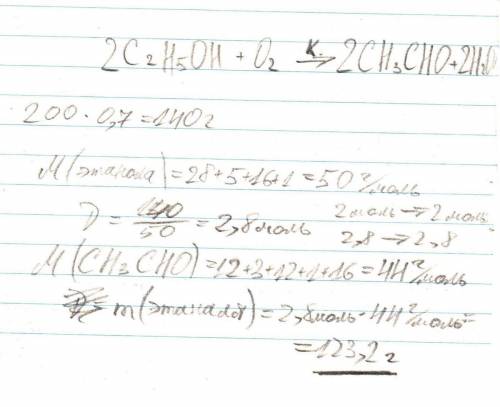 2C₂H₅OH + O₂ →ᴷ· 2CH₃CHO+2H₂O
200 · 0,7=140г
M(этанола)=28+5+16+1=50г/моль
D = 140/50 = 2,8моль 2моль→2моль
2,8→2,8
M(CH₃CHO)=12+3+12+1+16=44г/моль
m(этаналя)=2,8моль·44г/моль=
=123,2г